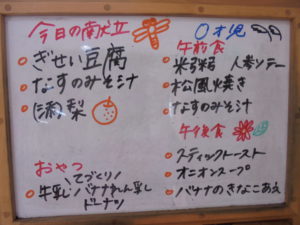 今日の献立
ぎせい豆腐
なすのみそ汁
梨
おやつ
てづくり
牛乳 バナナ蒸し
ドーナツ
0才児
午前食
米粥 人参ソテー
松風焼き
なすのみそ汁
午後食
スティックトースト
オニオンスープ
バナナのきなこあえ